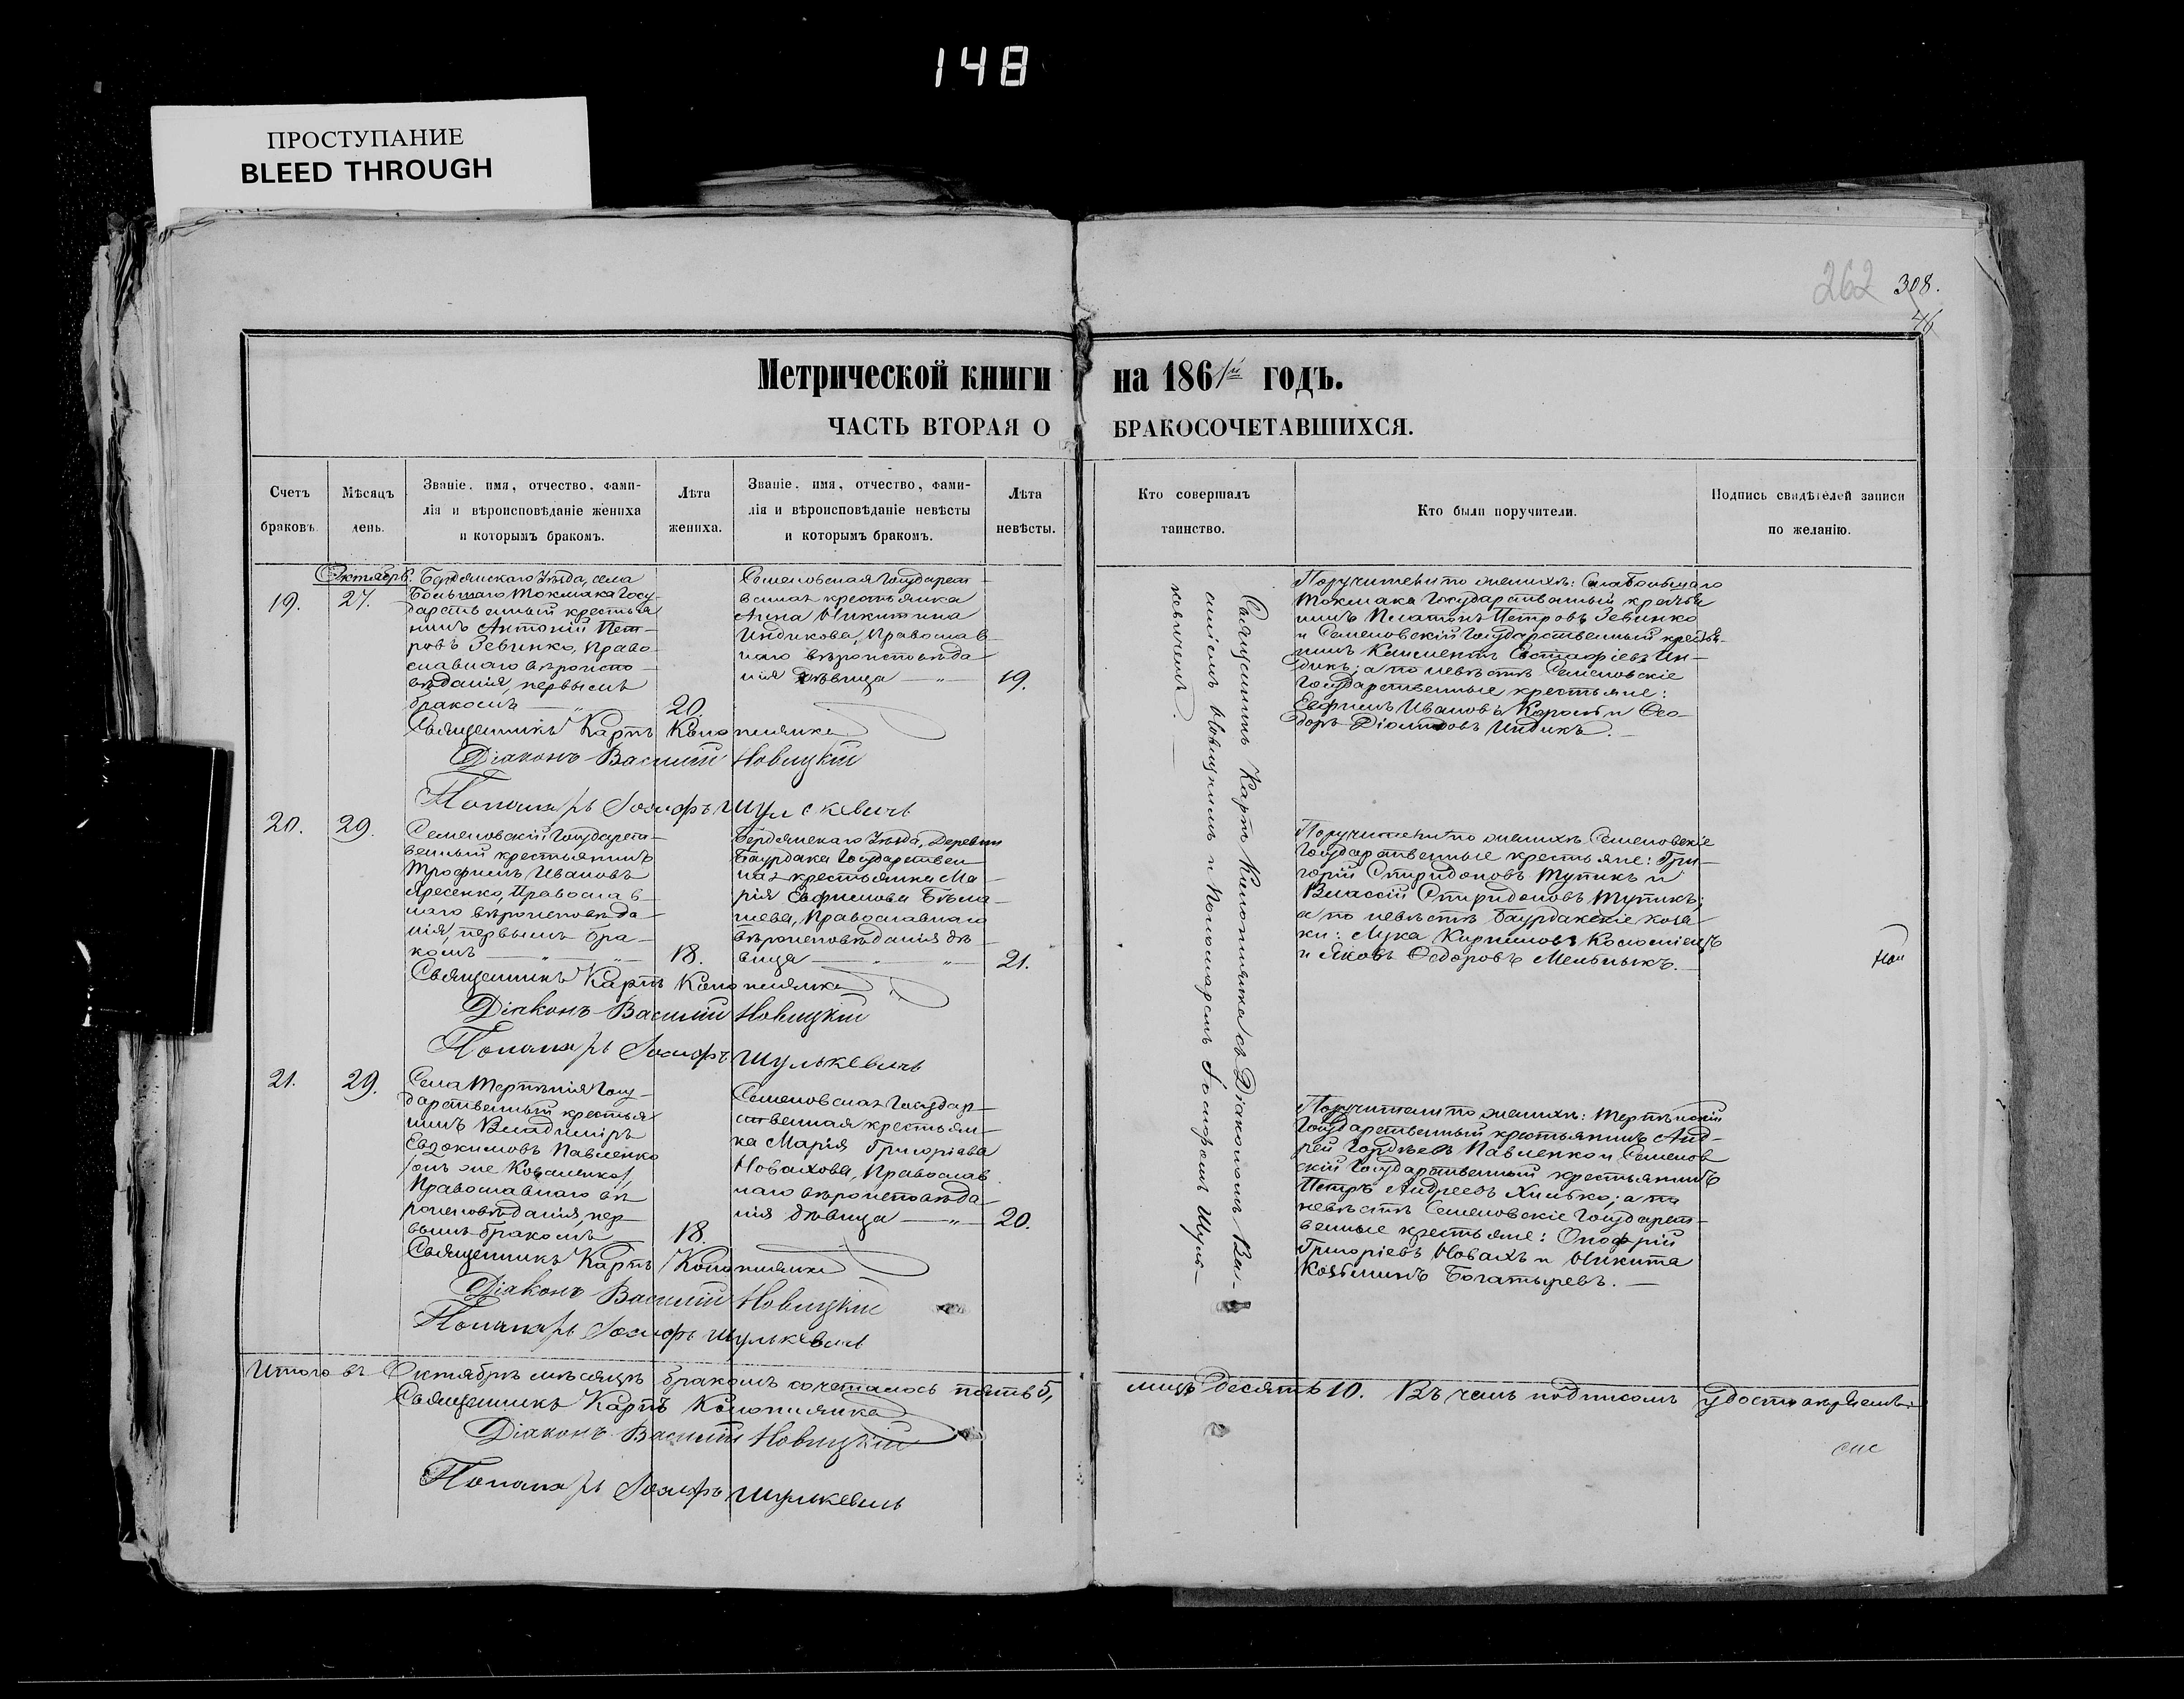 148
ПРОСТУПАНИЕ
BLEED THROUGH
262 308.
46
Метрической книги на 1861й годъ.
ЧАСТЬ ВТОРАЯ О БРАКОСОЧЕТАВШИХСЯ.
Счетъ
браковъ.
Мѣсяцъ
день.
Званіе, имя, отчество, фами-
лія и вѣроисповѣданіе жениха
и которымъ бракомъ.
Лѣта
жениха.
Званіе, имя, отчество, фами-
лія и вѣроисповѣданіе невѣсты
и которымъ бракомъ.
Лѣта
невѣсты.
Кто совершалъ
таинство.
Кто были поручители.
Подпись свидѣтелей записи
по желанію.
Октябрь.
19.
27.
Бердянскаго Уѣзда, села
Большаго Токмака Госу-
дарственный крестья
нинъ Антоній Пет-
ровъ Зевинко, Право-
славнаго вѣроиспо-
вѣданія, первымъ
бракомъ
20.
Семеновская Государст-
венная крестьянка
Анна Никитина
Индикова, Православ-
наго вѣроисповѣда-
нія дѣвица
19.
Священникъ Карпъ Коноплянка
Діаконъ Василій Новицкій
Пономарь Іосифъ Шулькевичъ
Священникъ Карпъ Коноплянка съ Діакономъ Ва-
силіемъ Новицкимъ и Пономаремъ Іосифомъ Шуль-
кевичемъ.
Поручители по женихѣ: Села Большаго
Токмака Государственный крестья
нинъ Платонъ Петровъ Зевинко
и Семеновскій Государственный крестья-
нинъ Климентъ Евстафіевъ Ин-
дикъ; а по невѣстѣ Семеновскіе
Государственные крестьяне:
Ефимъ Ивановъ и Ѳео-
доръ Діомидовъ Индикъ.
20.
29.
Семеновскій Государст-
венный крестьянинъ
Трофимъ Ивановъ
Яресенко, Православ-
наго вѣроисповѣда-
нія, первымъ бра-
комъ
18.
Бердянскаго Уѣзда, Деревни
Баурдака Государствен
ная крестьянка Ма-
рія Евфимова
Православнаго
вѣроисповѣданія дѣ-
вица
21.
Священникъ Карпъ Коноплянка
Діаконъ Василій Новицкій
Пономарь Іосифъ Шулькевичъ
Поручители по женихѣ Семеновскіе
Государственные крестьяне: Гри-
горій Спиридоновъ Тупикъ и
Власій Спиридоновъ Тупикъ;
а по невѣстѣ Баурдакскіе коза
ки: Лука Кириловъ Коломіецъ
и Яковъ Ѳедоровъ Мельникъ.
21.
29.
Села Терпѣнія Госу-
дарственный крестья
нинъ Владиміръ
Евдокимовъ Павленко
/онъ же Коваленко/,
Православнаго вѣ
роисповѣданія, пер-
вымъ бракомъ
18.
Семеновская Государ-
ственная крестьян-
ка Марія Григоріева
Новахова, Православ
наго вѣроисповѣда-
нія дѣвица
20.
Священникъ Карпъ Коноплянка
Діаконъ Василій Новицкій
Пономарь Іосифъ Шулькевичъ
Поручители по женихѣ: Терпѣнскій
Государственный крестьянинъ Анд-
рей Гордѣевъ Павленко и Семенов
скій Государственный крестьянинъ
Петръ Андреевъ Хилько; а по
невѣстѣ Семеновскіе Государст-
венные крестьяне: Онофрій
Григоріевъ Новахъ и Никита
Козьминъ Богатыревъ.
Итого въ Октябрѣ мѣсяцѣ бракомъ сочеталось пять 5, лицъ десять 10. Въ чемъ подписомъ удостовѣряемъ:
Священникъ Карпъ Коноплянка
Діаконъ Василій Новицкій
Пономарь Іосифъ Шулькевичъ